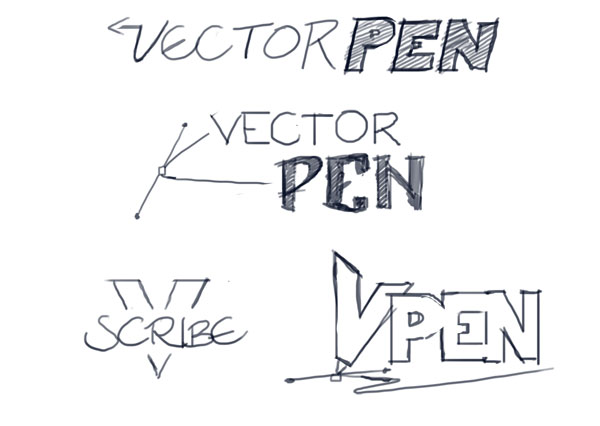 VECTORPEN
VECTOR
PEN
V
SCRIBE
VPEN